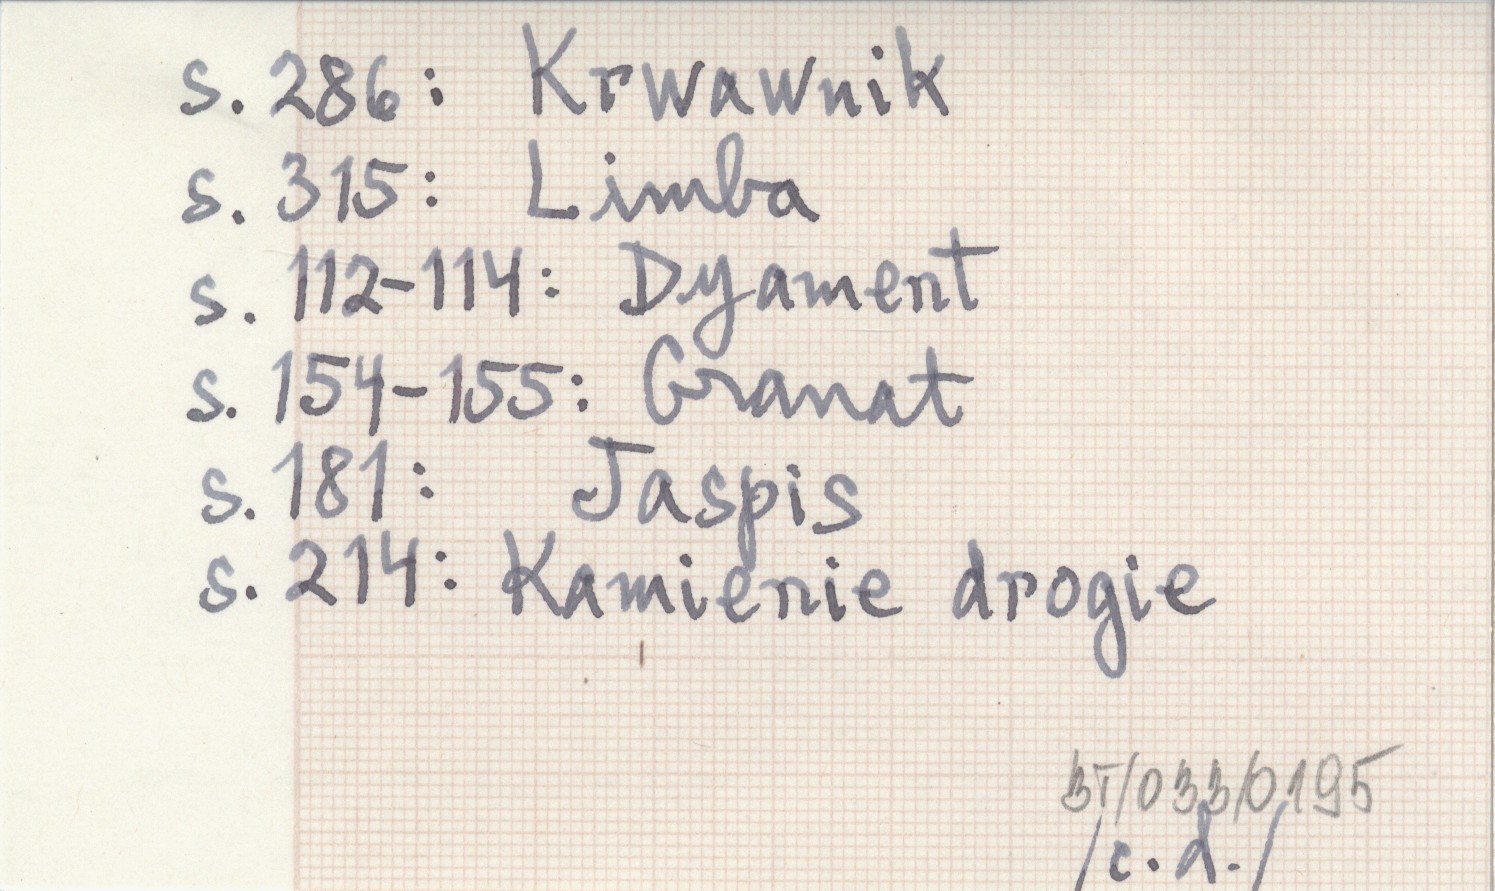 s. 286: Krwawnik
s. 315: Limba
s. 112-114: Dyament
s. 154-155: Granat
s. 181: Jaspis
s. 214: Kamienie drogie
BT/033/0195
/c.d./